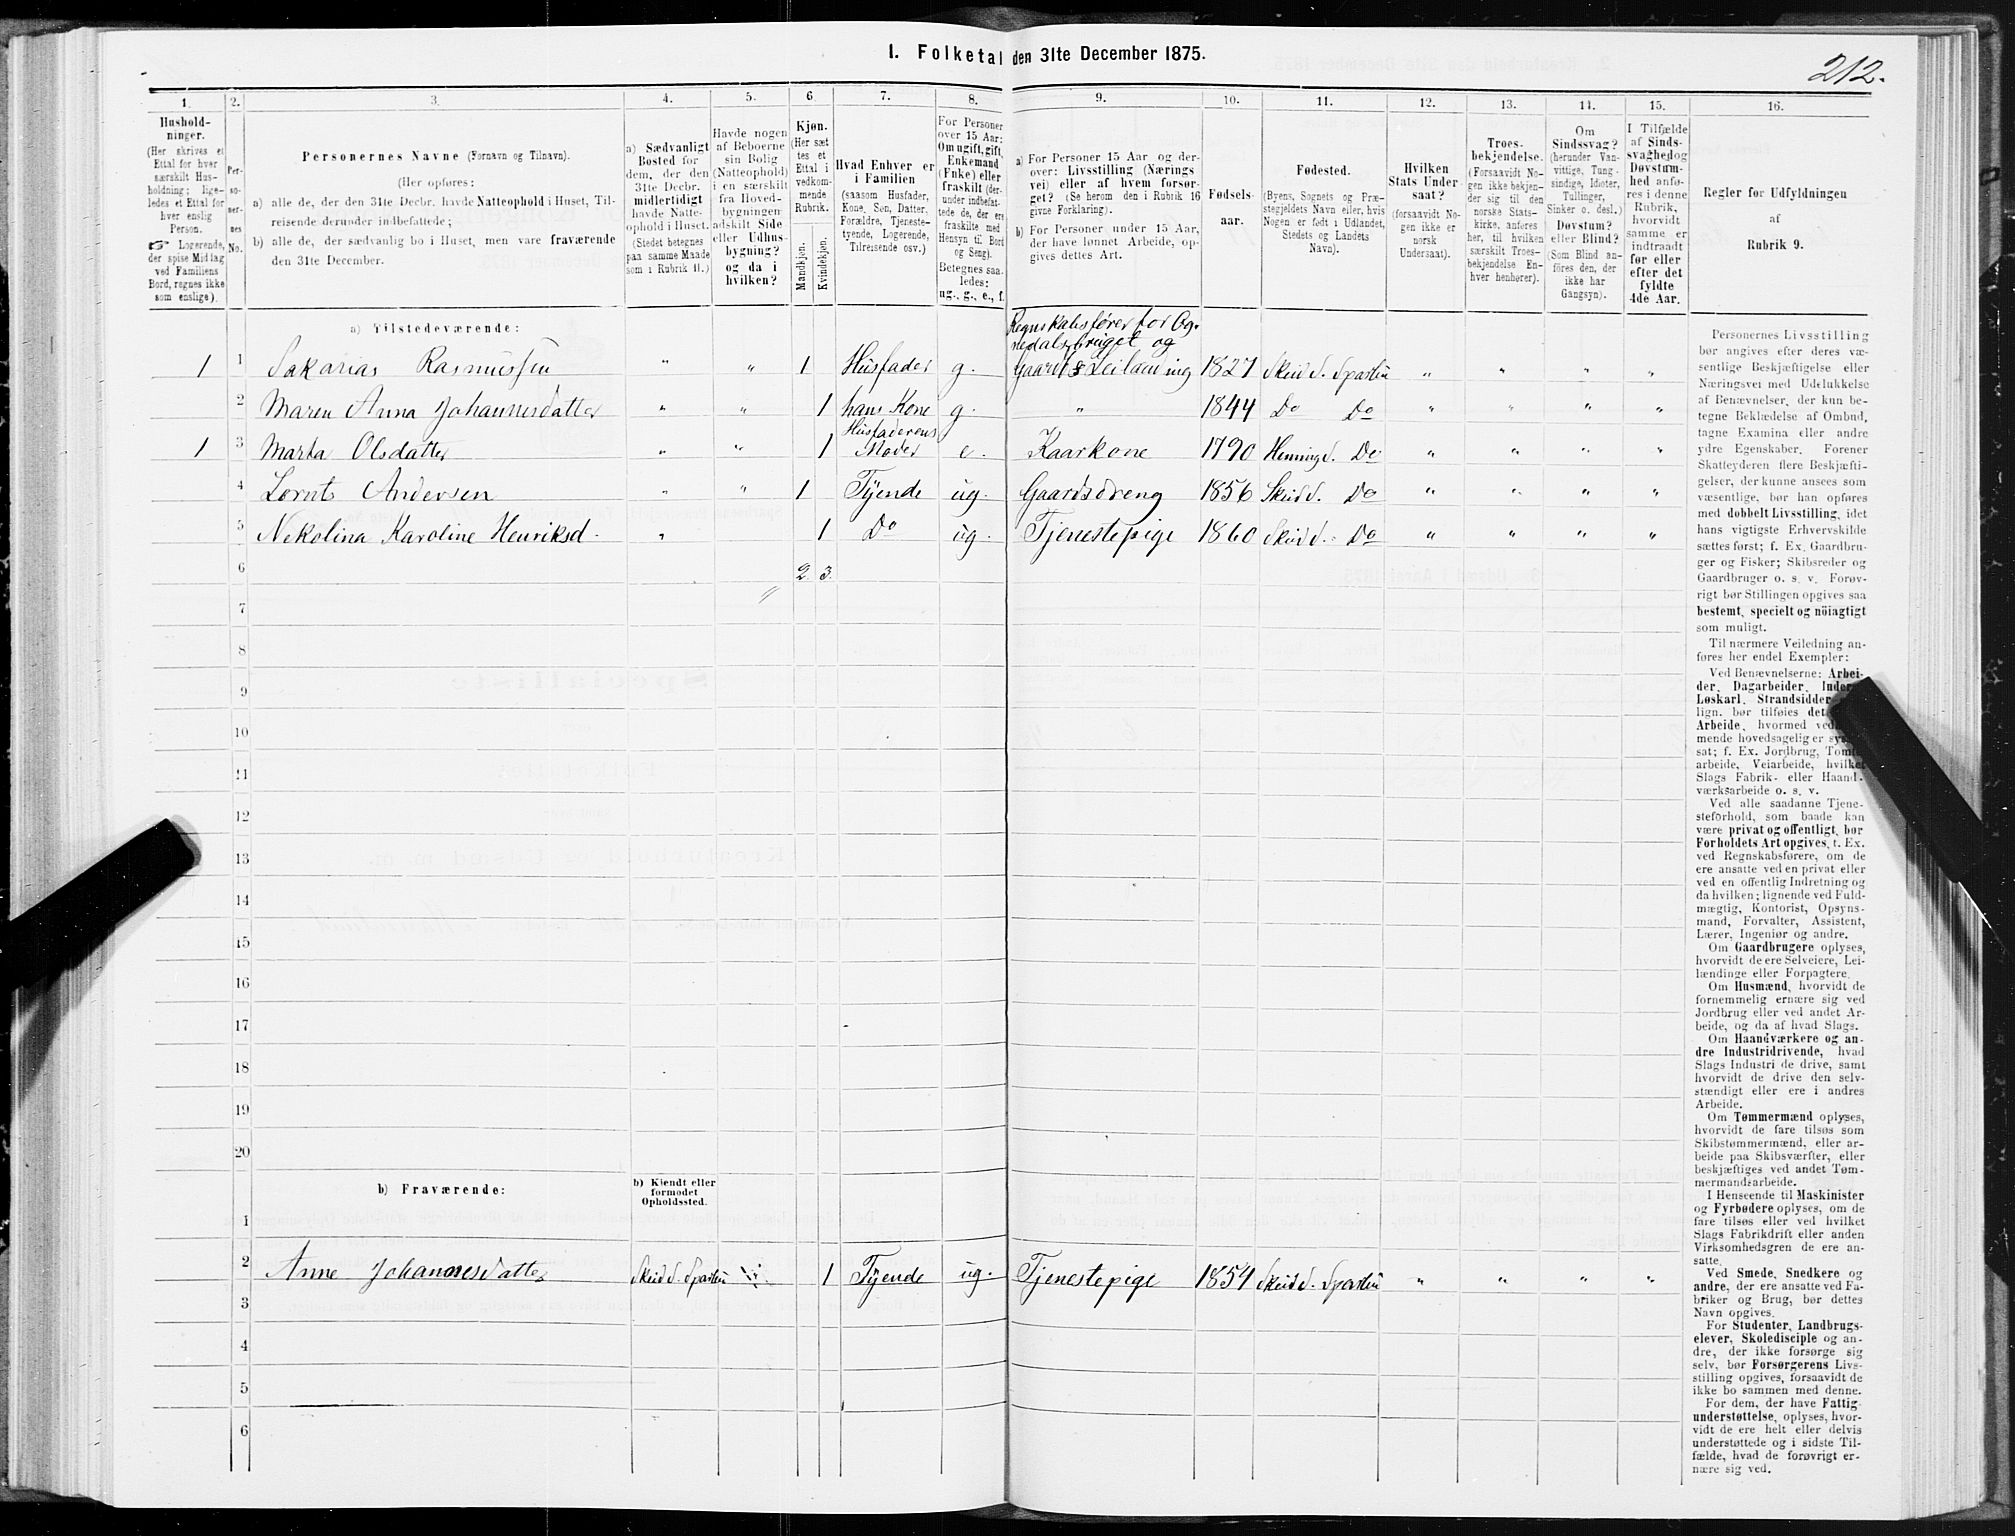 I. Folketal den 31te December 1875.
212.
1. 2. 3. 4. 5. 6. 7. 8. 9. 10. 11. 12. 13. 14. 15. 16.
Hushold-
ninger.
(Her skrives et
Ettal for hver
særskilt Hus-
holdning; lige-
ledes et Ettal for
hver enslig
Person.
☞ Logerende,
der spise Midlag
ved Familiens
Bord, regnes ikke
som enslige).
Per-
so-
ner-
nes
No.
Personernes Navne (Fornavn og Tilnavn).
(Her opføres:
a) alle de, der den 31te Decbr. havde Natteophold i Huset, Til-
reisende derunder indbefattede;
b) alle de, der sædvanlig bo i Huset, men vare fraværende
den 31te December.
a) Sædvanligt
Bosted for
dem, der den
31te Decbr.
midlertidigt
havde Natte-
ophold i Huset.
(Stedet betegnes
paa samme Maade
som i Rubrik 11.)
Havde nogen
af Beboerne
sin Bolig
(Natteophold)
i en særskilt
fra Hoved-
bygningen
adskilt Side
eller Udhus-
bygning?
og da i
hvilken?
Kjøn.
(Her sæt
tes et
Ettal i
vedkom-
mende
Rubrik.
Mandkjøn.
Kvindekjøn.
Hvad Enhver er
i Familien
(saasom Husfader,
Kone, Søn, Datter,
Forældre, Tjeneste-
tyende, Logerende,
Tilreisende osv.)
For Personer
over 15 Aar:
Om ugift, gift,
Enkemand
(Enke) eller
fraskilt (der-
under indbefat-
tede de, der ere
fraskilte med
Hensyn til Bord
og Seng).
Betegnes saa-
ledes:
ug., g., e., f.
a) For Personer 15 Aar og der-
over: Livsstilling (Nærings
vei) eller af hvem forsør-
get? (Se herom den i Rubrik 16
givne Forklaring).
b) For Personer under 15 Aar,
der have lønnet Arbeide, op-
gives dettes Art.
Fødsels-
aar.
Fødested.
(Byens, Sognets og Præ-
stegjeldets Navn eller, hvis
Nogen er født i Udlandet,
Stedets og Landets
Navn).
Hvilken
Stats Under
saat?
(forsaavidt No-
gen ikke er
norsk
Undersaat).
Troes-
bekjendelse.
(Forsaavidt No-
gen ikke bekjen-
der sig til den
norske Stats-
kirke, anføres
her, til hvilken
særskilt Troes-
bekjendelse En-
hver henhører).
Om
Sindssvag?
(herunder Van-
vittige, Tung-
sindige, Idioter,
Tullinger,
Sinker o. desl.)
Døvstum?
eller Blind?
(Som Blind an-
føres den, der
ikke har
Gangsyn).
I Tilfælde
af Sinds-
svaghed og
Døvstum-
hed anfø-
res i denne
Rubrik,
hvorvidt
samme er
indtraadt
før eller
efter det
fyldte
4de Aar.
Regler for Udfyldningen
af
Rubrik 9.
a) Tilstedeværende:
Regnskabsfører for Og-
nedalsbruget og
1 1 Sakarias Rasmussen " " 1 Husfader g. Gaardbr Leilænding 1827 Skeid S. Sparbu " " " "
2 Maren Anna Johannesdatter " " 1 hans Kone g. " 1844 Do Do " " " "
Husfaderens
1 3 Marta Olsdatter " " 1 Moder e. Kaarkone 1790 Henning S. Do " " " "
4 Lornts Andersen " " 1 Tyende ug. Gaardsdreng 1856 Skeid S. Do " " " "
5 Nekolina Karoline Henriksd. " 1 Do ug. Tjenestepige 1860 Skeid S. Do " " " "
6 2. 3.
7
8
9
10
11
12
13
14
15
16
17
18
19
20
b) Fraværende:
b) Kjendt eller
formodet
Opholdssted.
1
2 Anne Johannesdatter Skeid S. Sparbu 1 Tyende ug. Tjenestepige 1854 Skeid S. Sparbu " " " "
3
4
5
6
Personernes Livsstilling
bør angives efter deres væ-
sentlige Beskjæftigelse eller
Næringsvei med Udelukkelse
af Benævnelser, der kun be-
tegne Beklædelse af Ombud,
tagne Examina eller andre
ydre Egenskaber. Forener
Skatteyderen flere Beskjæfti-
gelser, der kunne ansees som
væsentlige, bør han opføres
med dobbelt Livsstilling, idet
hans vigtigste Erhvervskilde
sættes først; f. Ex. Gaardbru-
ger og Fisker; Skibsreder og
Gaardbruger o. s. v. Forøv-
rigt bør Stillingen opgives saa
bestemt, specielt og nöiagtigt
som muligt.
Til nærmere Veiledning an-
føres her endel Exempler:
Ved Benævnelserne: Arbei-
der, Dagarbeider, Inder
Løskarl, Strandsidder
lign. bør tilføies det
Arbeide, hvormed ved
mende hovedsagelig er sys
sat; f. Ex. Jordbrug, Tomte
arbeide, Veiarbeide, hvilket
Slags Fabrik- eller Haand-
værksarbeide o. s. v.
Ved alle saadanne Tjene-
steforhold, som baade kan
være privat og offentligt, bør
Forholdets Art opgives, t. Ex.
ved Regnskabsførere, om de
ere ansatte ved en privat eller
ved en offentlig Indretning og
da hvilken; lignende ved Fuld-
mægtig, Kontorist, Opsyns-
mand, Forvalter, Assistent,
Lærer, Ingeniør og andre.
Om Gaardbrugere oplyses,
hvorvidt de ere Selveiere, Lei-
lændinge eller Forpagtere.
Om Husmænd, hvorvidt de
fornemmelig ernære sig ved
Jordbrug eller ved andet Ar-
beide, og da af hvad Slags.
Om Haandværkere og an-
dre Industridrivende, hvad
Slags Industri de drive, samt
hvorvidt de drive den selv-
stændigt eller ere i andres
Arbeide.
Om Tømmermænd oplyses,
hvorvidt de fare tilsøs som
Skibstømmermænd, eller ar-
beide paa Skibsværfter, eller
beskjæftiges ved andet Tøm-
mermandsarbeide.
I Henseende til Maskinister
og Fyrbødere oplyses, om de
fare tilsøs eller ved hvilket
Slags Fabrikdrift eller anden
Virksomhedsgren de ere an-
satte.
Ved Smede, Snedkere og
andre, der ere ansatte ved Fa-
briker og Brug, bør dettes
Navn opgives.
For Studenter, Landbrugs-
elever, Skoledisciple og an-
dre, der ikke forsørge sig
selv, bør Forsørgerens Livs-
stilling opgives, forsaavidt de
ikke bo sammen med denne.
For dem, der have Fattig
understøttelse, oplyses, hvor-
vidt de ere helt eller delvis
understøttede og i sidste Til-
fælde, hvad de forøvrigt er-
nære sig ved.